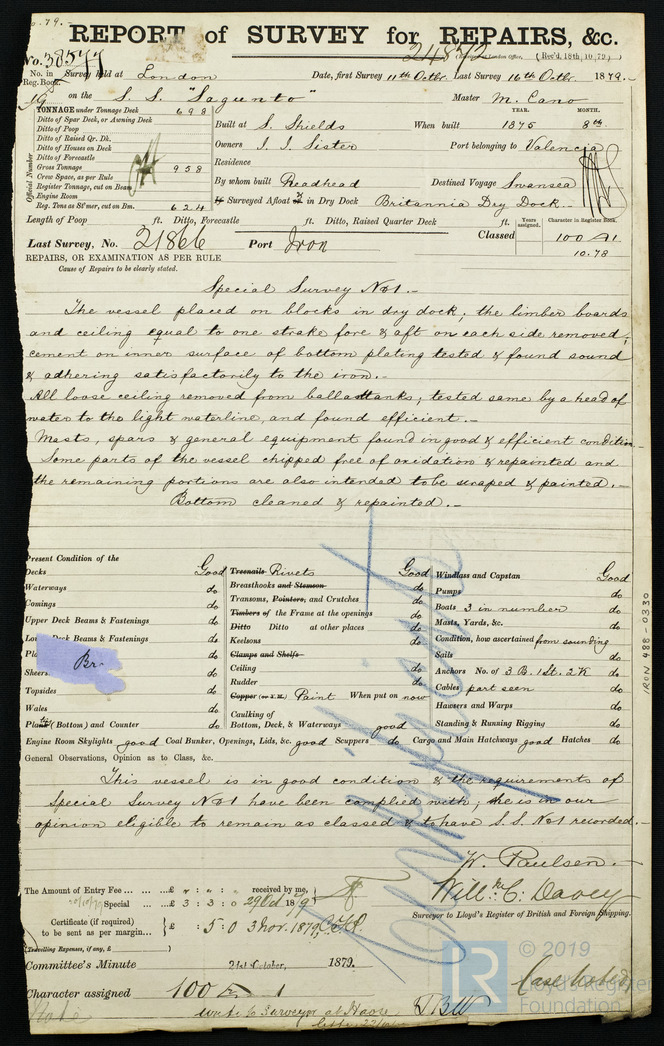 REPORT of SURVEY for REPAIRS, &c.
No. 38577
24872
(Rec'd. 18th, 10, 79)
No. in Reg. Book. Survey held at London Date, first Survey 11th Octbr. Last Survey 16th Octbr. 1879.
on the S. S. "Sagunto" Master M. Cano
TONNAGE under Tonnage Deck 698
Ditto of Spar Deck, or Awning Deck
Ditto of Poop
Ditto of Raised Qr. Dk.
Ditto of Houses on Deck
Ditto of Forecastle
Gross Tonnage 958
Crew Space, as per Rule
Register Tonnage, cut on Beam
Engine Room
Reg. Tons as St'mer, cut on Bm. 624
Official Number
YEAR. MONTH.
Built at S. Shields When built 1875 8th
Owners J. J. Sister Port belonging to Valencia
Residence
By whom built Readhead Destined Voyage Swansea
Surveyed Afloat or in Dry Dock Britannia Dry Dock.
Length of Poop ft. Ditto, Forecastle ft. Ditto, Raised Quarter Deck ft.
Years assigned. Character in Register Book.
Last Survey, No. 21866 Port Iron Classed 100 A1
10.78
REPAIRS, OR EXAMINATION AS PER RULE
Cause of Repairs to be clearly stated.
Special Survey No1.—
The vessel placed on blocks in dry dock; the limber boards
and ceiling equal to one strake fore & aft on each side removed;
cement on inner surface of bottom plating tested & found sound
& adhering satisfactorily to the iron.—
All loose ceiling removed from ballast tanks; tested same by a head of
water to the light waterline, and found efficient.—
Masts, spars & general equipment found in good & efficient condition
Some parts of the vessel chipped free of oxidation & repainted and
the remaining portions are also intended to be scraped & painted.—
Bottom cleaned & repainted.—
Present Condition of the
Decks Good
Waterways do
Comings do
Upper Deck Beams & Fastenings do
Deck Beams & Fastenings do
do
Sheers do
Topsides do
Wales do
Plank (Bottom) and Counter do
Treenails Rivets Good
Breasthooks and Stemson do
Transoms, Pointers, and Crutches do
Timbers of the Frame at the openings do
Ditto Ditto at other places do
Keelsons do
Clamps and Shelfs
Ceiling do
Rudder do
Copper (or Y.M.) Paint When put on now
Caulking of
Bottom, Deck, & Waterways good
Windlass and Capstan Good
Pumps do
Boats 3 in number do
Masts, Yards, &c. do
Condition, how ascertained from sounding
Sails do
Anchors No. of 3 B. 1 St. 2 K do
Cables part seen do
Hawsers and Warps do
Standing & Running Rigging do
Engine Room Skylights good Coal Bunker, Openings, Lids, &c. good Scuppers do Cargo and Main Hatchways good Hatches do
General Observations, Opinion as to Class, &c.
This vessel is in good condition & the requirements of
Special Survey No1 have been complied with; she is in our
opinion eligible to remain as classed & to have S. S. No1 recorded.—
W. Paulsen.—
Willm. C. Davey
Surveyor to Lloyd's Register of British and Foreign Shipping.
The Amount of Entry Fee £ " : " : " received by me,
Special £ 3 : 3 : 0 29 Oct 1879
Certificate (if required) to be sent as per margin £ : 5 : 0 3 Nov. 1879
(Travelling Expenses, if any, £ )
Committee's Minute 21st October, 1879.
Character assigned 100 A 1
IRON 488-0330
LR
© 2019
Lloyd's Register
Foundation